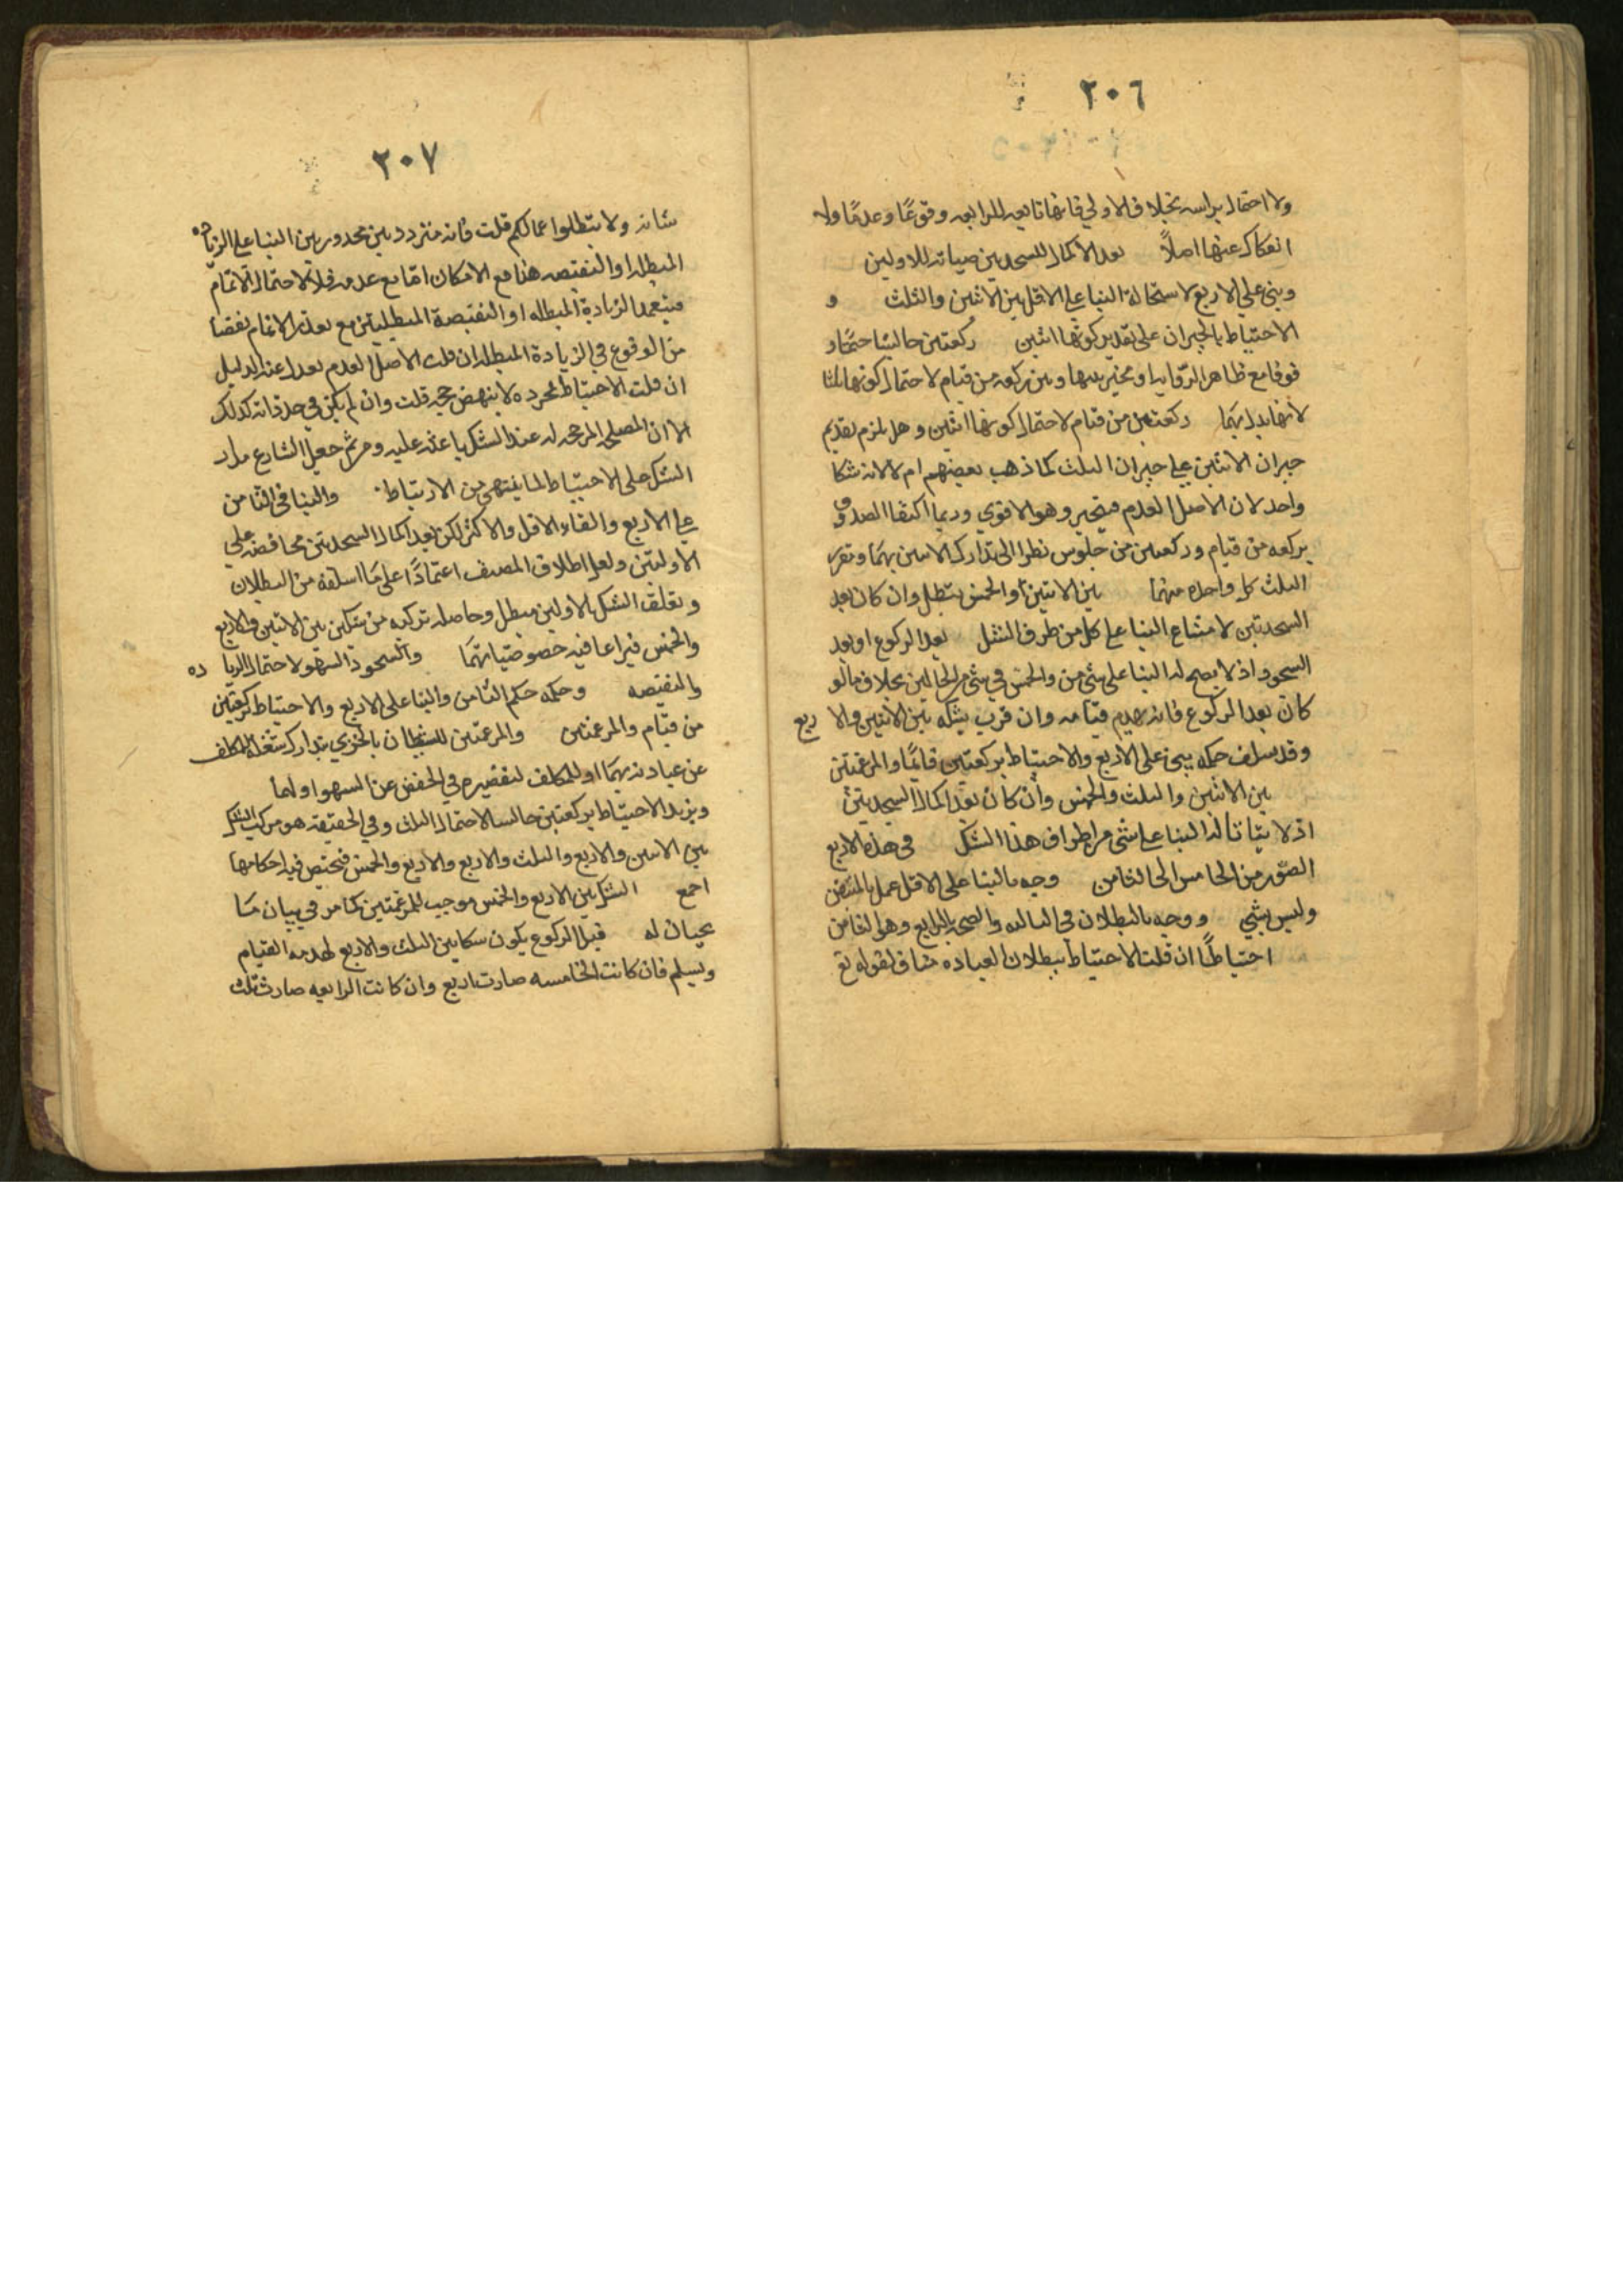 ٢٠٦
ولا احتمال براسه بخلاف الاولي فانها تابعه للرابعه وقوعًا وعدمًا ولا
انفكاك عنها اصلاً بعد الاكمال للسجدتين صيانه للاولين
ويبني علي الاربع لاستحالة البنا علي الاقل بين الاثنين والثلث و
الاحتياط بالجبران علي تقدير كونها اثنين ركعتين جالسًا حتمًا و
فوفا مع ظاهر الرواية او مخير بينها وبين ركعه من قيام لاحتمال كونها ثلثا
لانها بدل بهما ركعتين من قيام لاحتمال كونها اثنين وهل يلزم تقديم
جبران الاثنين علي جبران الثلث كما ذهب بعضهم ام لا لانه شكا
واحد لان الاصل العدم فيتخير وهو الاقوي وربما اكتفا الصدوق
بركعه من قيام وركعتين من جلوس نظرا الي تدارك الاثنين بهما وتفرد
الثلث كل واحده منهما بين الاثنين والخمس يبطل وان كان بعد
السجدتين لامتناع البنا علي كل من طرف الشك بعد الركوع او بعد
السجود اذ لا يصح له البنا علي شي من والخمس في شي من الحالين بخلاف ما لو
كان بعد الركوع فانه يهدم قيامه وان قرب يشكه بين الاثنين والا ربع
وقد سلف حكمه يبني علي الاربع والاحتياط بركعتين قايمًا والمرغمتين
بين الاثنين والثلث والخمس وان كان بعد اكمال السجدتين
اذ لا يتاتا له البنا علي شي من اطراف هذا الشك في هذه الاربع
الصور من الخامس الي الثامن وجه بالبنا علي الاقل عمل بالمتيقن
وليس بشي ووجه بالبطلان في الثالثه والصحه بالرابع وهو الثامن
احتياطًا ان قلت الاحتياط ببطلان العباده مناف لقوله تع
٢٠٧
شانه ولا تبطلوا اعمالكم قلت فانه متردد بين محدورين البنا علي الزياده
المبطله او النقيصه هذا مع الامكان اما مع عدمه فلا لاحتمال الاتمام
فيتعمد الزيادة المبطله او النقيصة المبطليتن مع تعذر الاتمام تفصيا
من الوقوع في الزيادة المبطله ان قلت الاصل العدم بعدا عند الدليل
ان قلت الاحتياط بمجرده لا ينهض حجه قلت وان لم يكن في حد ذاته كذلك
الا ان المصلي المرجحه له عند الشك باعثه عليه ومن ثم جعل الشارع مدار
الشك علي الاحتياط لما يقتضي من الارتباط والبنا في الثامن
علي الاربع والغاء الاقل والاكثر لكن بعد اكمال السجدتين محافضه علي
الاولتين ولعل اطلاق المصنف اعتمادًا علي ما اسلفه من البطلان
وتعلق الشك بالاولين مبطل وحاصله تركبه من شكين بين الاثنين والاربع
والخمس فيراعا فيه خصوصياتهما والسجود السهو لاحتمال الزيا ده
والنقيصه وحكمه حكم الثامن والبنا علي الاربع والاحتياط بركعتين
من قيام والمرغمتين والمرغمتين للشيطان بالخزي بتدارك شغله المكلف
عن عبادته بهما او للمكلف لتقصيره في التحفض عن السهو اولها
ويزيد الاحتياط بركعتين جالسا لاحتمال الثلث وفي الحقيقه هو مركب الشك
بين الاثنين والاربع والثلث والاربع والاربع والخمس فيختص فيه احكامها
اجمع الشك بين الاربع والخمس موجب للمرغمتين كما مر في بيان ما
يجبان له قبل الركوع يكون شكا بين الثلث والاربع لهدمه القيام
ويسلم فان كانت الخامسه صارت اربع وان كانت الرابعه صارت ثلث